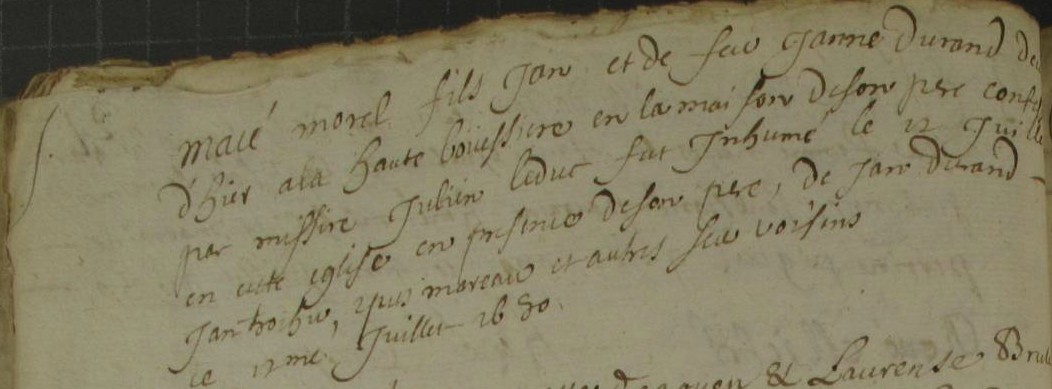 Macé morel fils Jan et de feu Janne Durand
d'hier a la haute boüessiere en la maison de son pere
par missire Julien leduc fut Inhumé le 12 Juille
en cette eglise en presence de son pere, de Jan durand
Jan, yves moreau et autres voisins
le 12me Juillet 1630
& Laurense